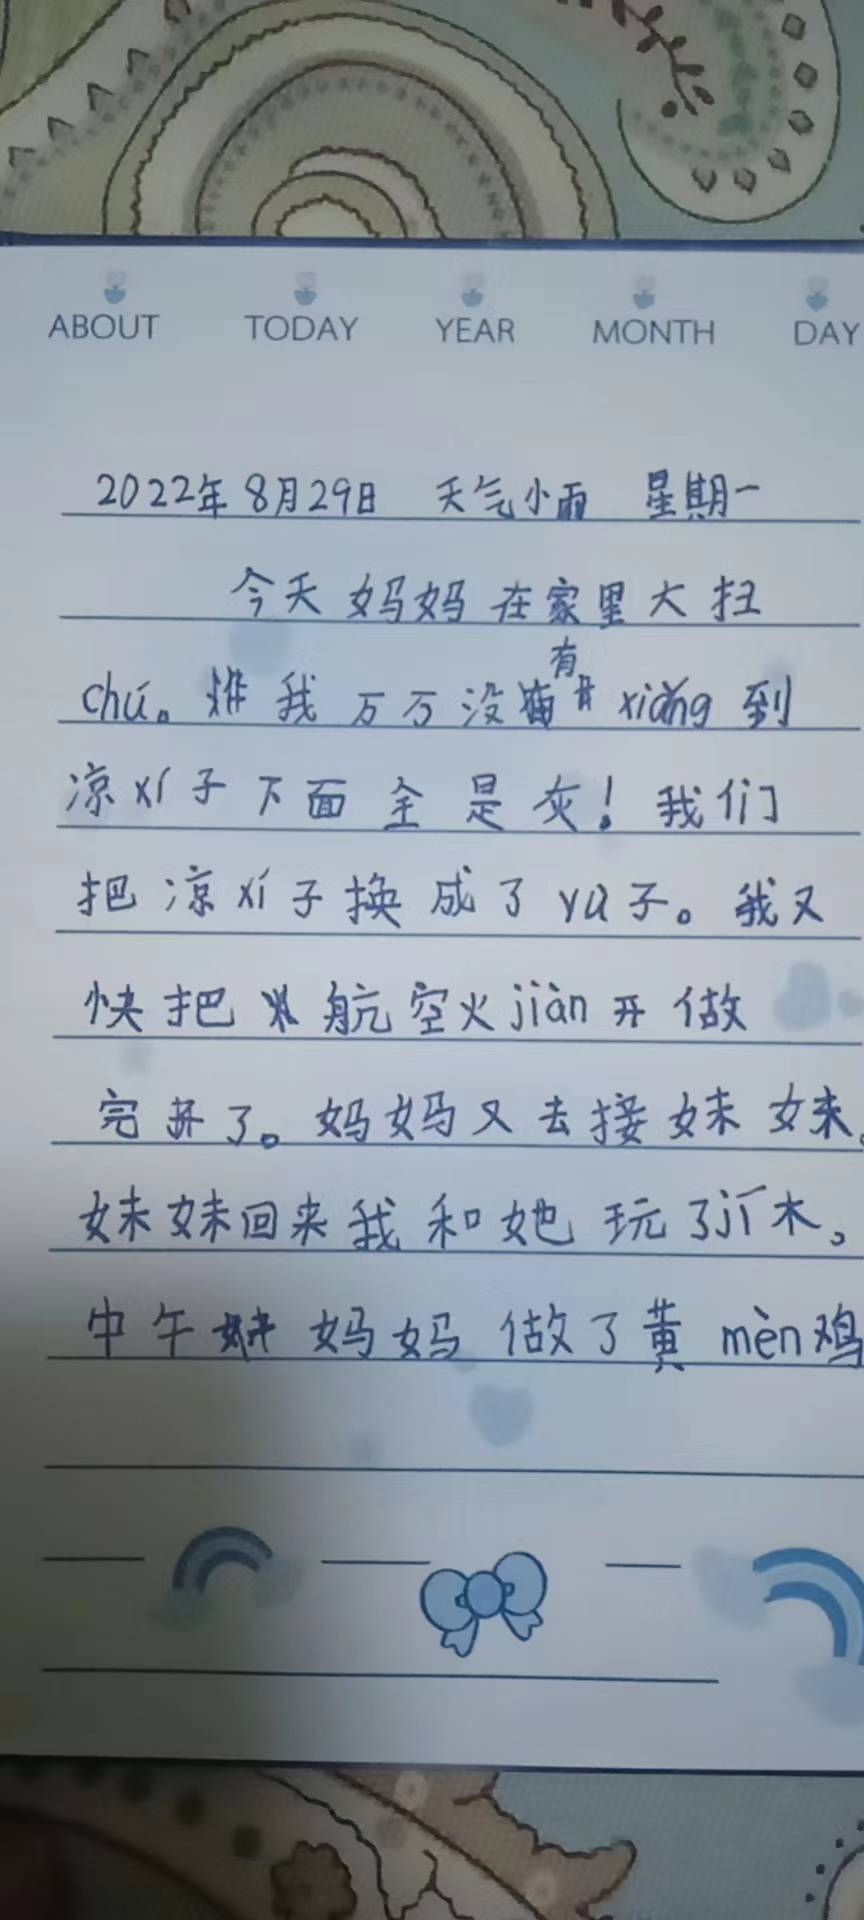 ABOUT TODAY YEAR MONTH DAY
2022年8月29日 天气小雨 星期一
今天妈妈在家里大扫
chú。我万万没有xiǎng到
凉xí子下面全是灰！我们
把凉xí子换成了rù子。我又
快把航空火jiàn开做
完了。妈妈又去接妹妹。
妹妹回来我和她玩了jī木。
中午妈妈做了黄mèn鸡